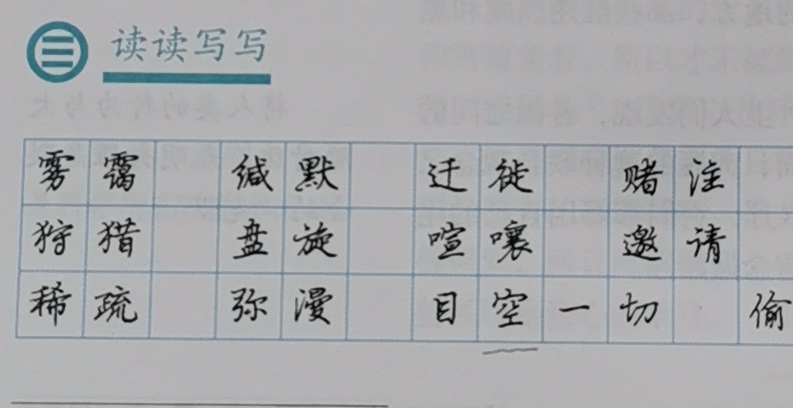 读读写写
雾霭 缄默 迁徙 赌注
狩猎 盘旋 喧嚷 邀请
稀疏 弥漫 目空一切 偷